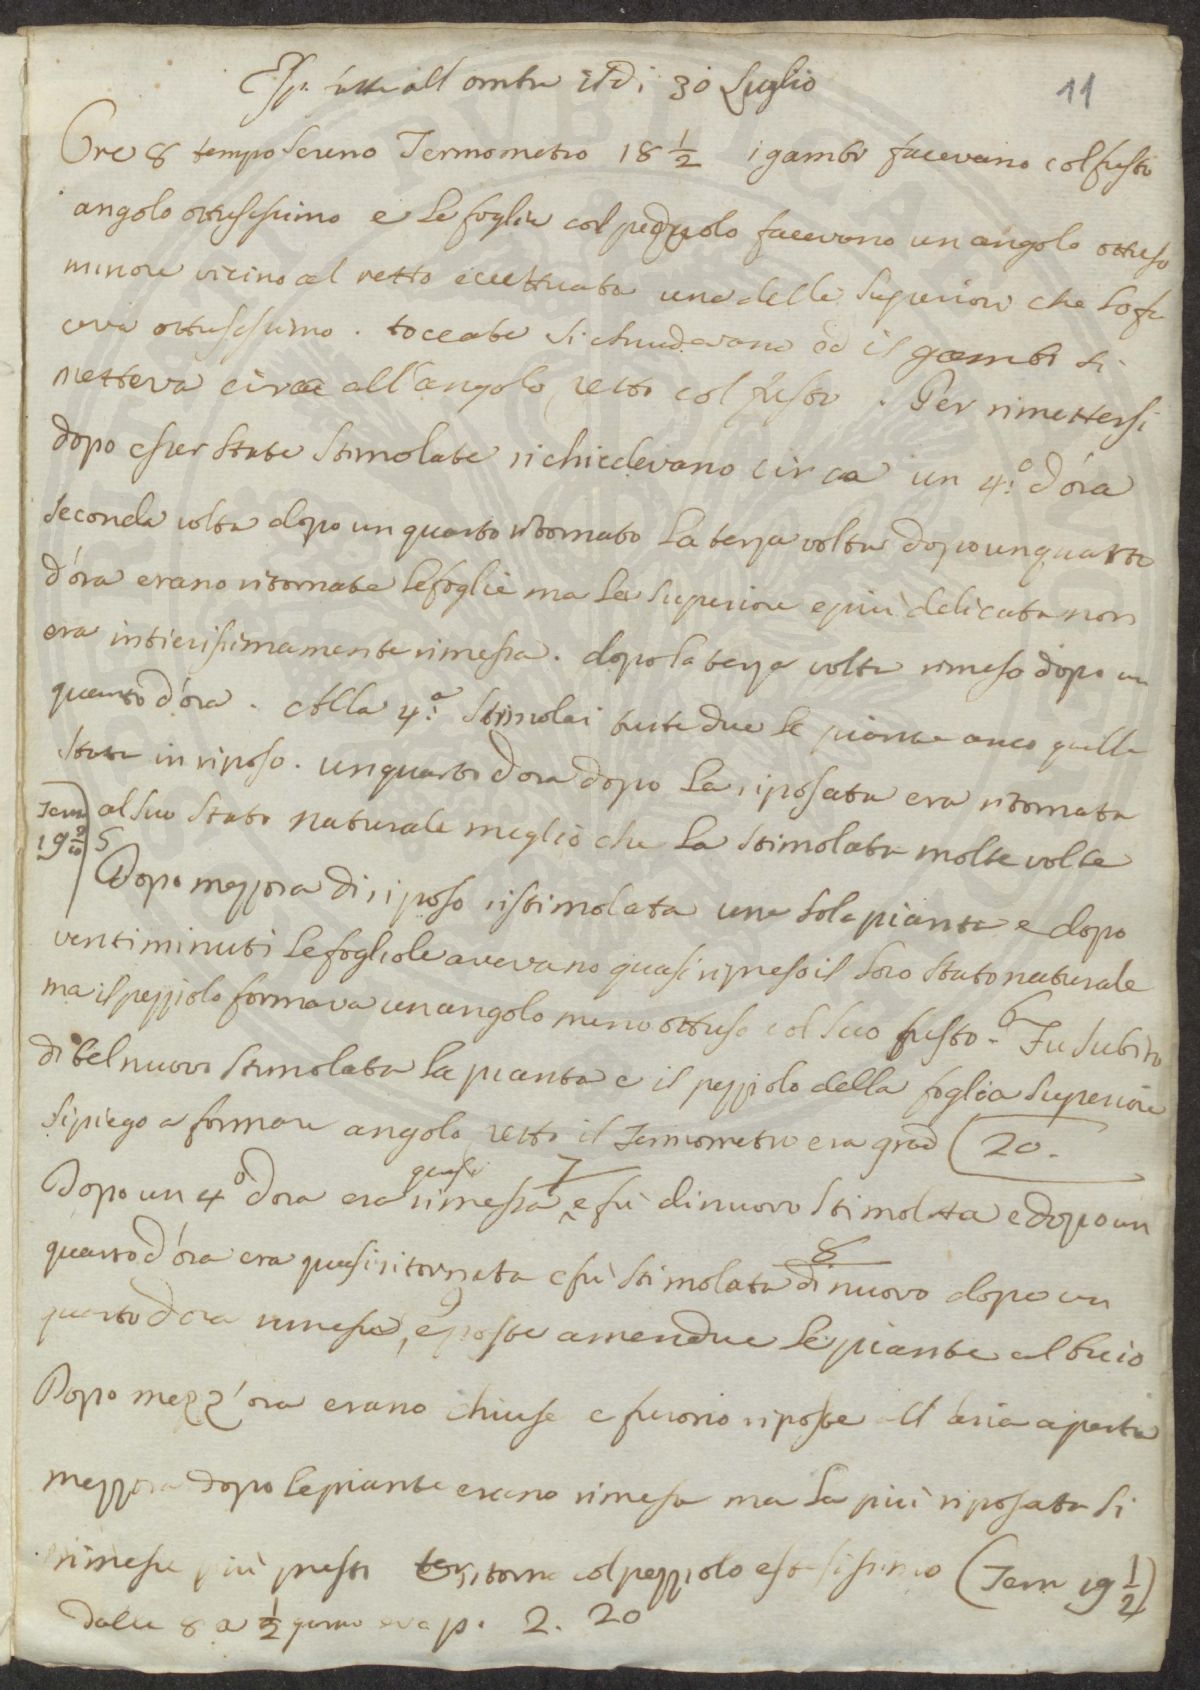 Esp. fatte all ombra il dì 30 Luglio
11
Ore 8 tempo sereno Termometro 18 1/2 i gambi facevano col fusto
angolo ottusissimo e le foglie col pezziolo facevano un angolo ottuso
minore vicino al retto eccettuata una delle superiori che lo fa
ceva ottusissimo. toccate si chiudevano ed il gambo si
metteva circa all'angolo retto col fusto. Per rimettersi
dopo esser state stimolate richiedevano circa un 4.º d'ora
seconda volta dopo un quarto ritornato la terza volta dopo un quarto
d'ora erano ritornate le foglie ma la superiore e più delicata non
era intierissimamente rimessa. dopo la terza volta rimeso dopo un
quarto d'ora. Alla 4.ª stimolai tutte due le piante anco quella
stata in riposo. un quarto d'ora dopo la riposata era ritornata
Term 19 2/10
al suo stato naturale meglio che la stimolata molte volte
5
Dopo mezzora di riposo ristimolata una sola pianta e dopo
venti minuti le fogliole avevano quasi ripreso il loro stato naturale
ma il pezziolo formava un angolo meno ottuso col suo fusto. 6 Fu subito
di bel nuovo stimolata la pianta e il pezziolo della foglia superiore
si piegò a formare angolo retto il Termometro era grad (20.
quasi 7
Dopo un 4º d'ora era rimessa e fù di nuovo stimolata e dopo un
8
quarto d'ora era quasi ritornata e fù stimolata di nuovo dopo un
9
quarto d'ora rimessa, e poste amendue le piante al buio
Dopo mezz'ora erano chiuse e furono riposte all'aria aperta
mezzora dopo le piante erano rimesse ma la più riposata si
rimesse più presto ritorna col pezziolo estesissimo (Term 19 1/2)
dalle 8 a 1/2 giorno era p. 2. 20